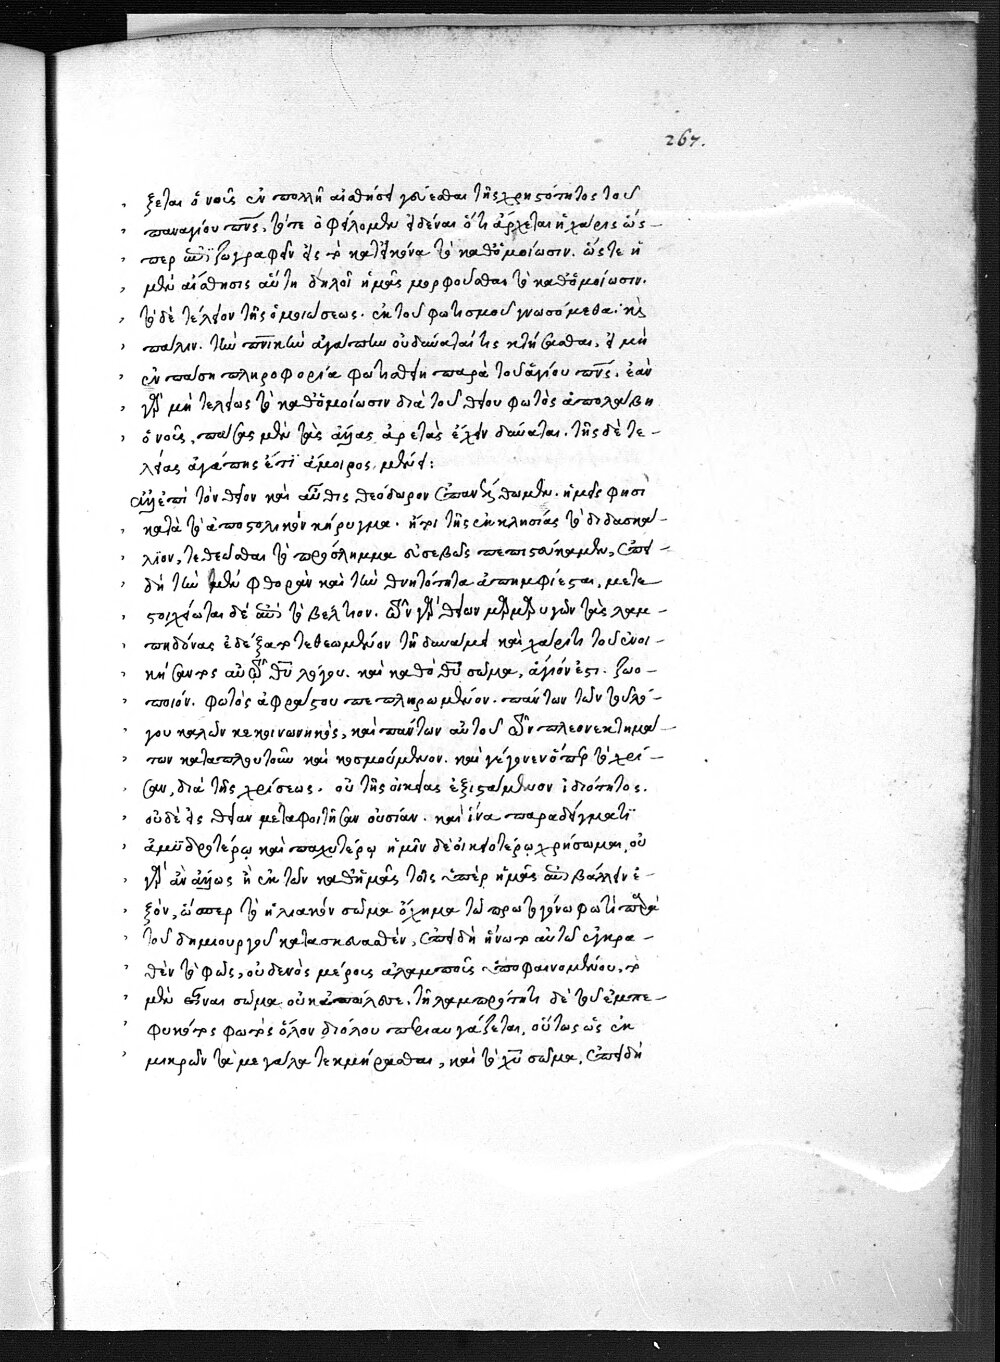 267.
ξεται ὁ νοῦς ἐν πολλῇ αἰσθήσει γεύεσθαι τῆς χρηστότητος τοῦ
παναγίου πνς, τότε ὀφείλομεν εἰδέναι ὅτι ἄρχεται ἡ χάρις ὥς–
περ ἐπιζωγραφεῖν εἰς τὸ κατ' εἰκόνα τὸ καθ' ὁμοίωσιν. ὥστε ἡ
μὲν αἴσθησις αὕτη δηλοῖ ἡμᾶς μορφοῦσθαι τὸ καθ' ὁμοίωσιν.
τὸ δὲ τέλειον τῆς ὁμοιώσεως. ἐκ τοῦ φωτισμοῦ γνωσόμεθα. καὶ
πάλιν. τὴν πνικὴν ἀγάπην οὐ δύναταί τις κτήσασθαι, εἰ μὴ
ἐν πάσῃ πληροφορίᾳ φωτισθείη παρὰ τοῦ ἁγίου πνς. ἐὰν
γὰρ μὴ τελείως τὸ καθ' ὁμοίωσιν διὰ τοῦ θείου φωτὸς ἀπολάβη
ὁ νοῦς, πάσας μὲν τὰς ἄλλας ἀρετὰς ἔχειν δύναται. τῆς δὲ τε–
λείας ἀγάπης ἔτι ἄμοιρος μένει:
ἀλλ' ἐπὶ τὸν θεῖον καὶ αὖθις θεόδωρον ἐπανέλθωμεν. ἡμεῖς φησὶ
κατὰ τὸ ἀποστολικὸν κήρυγμα. ἤτοι τῆς ἐκκλησίας τὸ διδασκα–
λεῖον, τεθεῶσθαι τὸ πρόσλημμα εὐσεβῶς πεπιστεύκαμεν, ἐπει–
δὴ τὴν μὲν φθορὰν καὶ τὴν θνητότητα ἀπημφίεσται, μετε
στοιχείωται δὲ ἐπὶ τὸ βέλτιον. τῶν γὰρ θείων μαρμαρυγῶν τὰς λαμ–
πηδόνας ἐδέξατο τεθεωμένον τῇ δυνάμει καὶ χάριτι τοῦ ἐνοι–
κήσαντος αὐτῷ θυ λόγου. καὶ καθὸ θυ σῶμα, ἅγιόν ἐστι. ζωο–
ποιόν. φωτὸς ἀφράστου πεπληρωμένον. πάντων τῶν τοῦ λό–
γου καλῶν κεκοινωνηκὸς, καὶ πάντων αὐτοῦ τῶν πλεονεκτημά–
των καταπλουτοῦν καὶ κοσμούμενον. καὶ γέγονεν ὅπερ τὸ χρί–
σαν, διὰ τῆς χρίσεως. οὐ τῆς οἰκείας ἐξιστάμενον ἰδιότητος.
οὐδὲ εἰς θείαν μεταφοιτῆσαν οὐσίαν. καὶ ἵνα παραδείγματι
ἀμυδροτέρῳ καὶ παχυτέρῳ ἡμῖν δὲ οἰκειοτέρῳ χρήσωμαι, οὐ
γὰρ ἂν ἄλλως ἢ ἐκ τῶν καθ' ἡμᾶς τοῖς ὑπὲρ ἡμᾶς ἐπιβάλλειν ἐ–
ξὸν, ὥσπερ τὸ ἡλιακὸν σῶμα ὄχημα τῷ πρωτογόνῳ φωτὶ παρὰ
τοῦ δημιουργοῦ κατασκευασθὲν, ἐπειδὴ ἥνωτο αὐτῷ ἐγκρα–
θὲν τὸ φῶς, οὐδενὸς μέρους ἀλαμποῦς ὑποφαινομένου, τὸ
μὲν εἶναι σῶμα οὐκ ἀπώλεσε. τῇ λαμπρότητι δὲ τοῦ ἐμπε–
φυκότος φωτὸς ὅλον διόλου περιαυγάζεται, οὕτως ὡς ἐκ
μικρῶν τὰ μεγάλα τεκμήρασθαι, καὶ τὸ χυ σῶμα, ἐπειδὴ